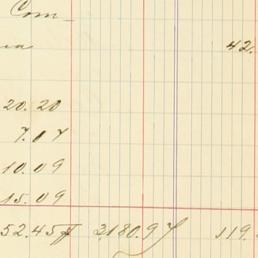 Com
42.
20.20
7.07
10.09
15.09
52.45 3180.97 119.